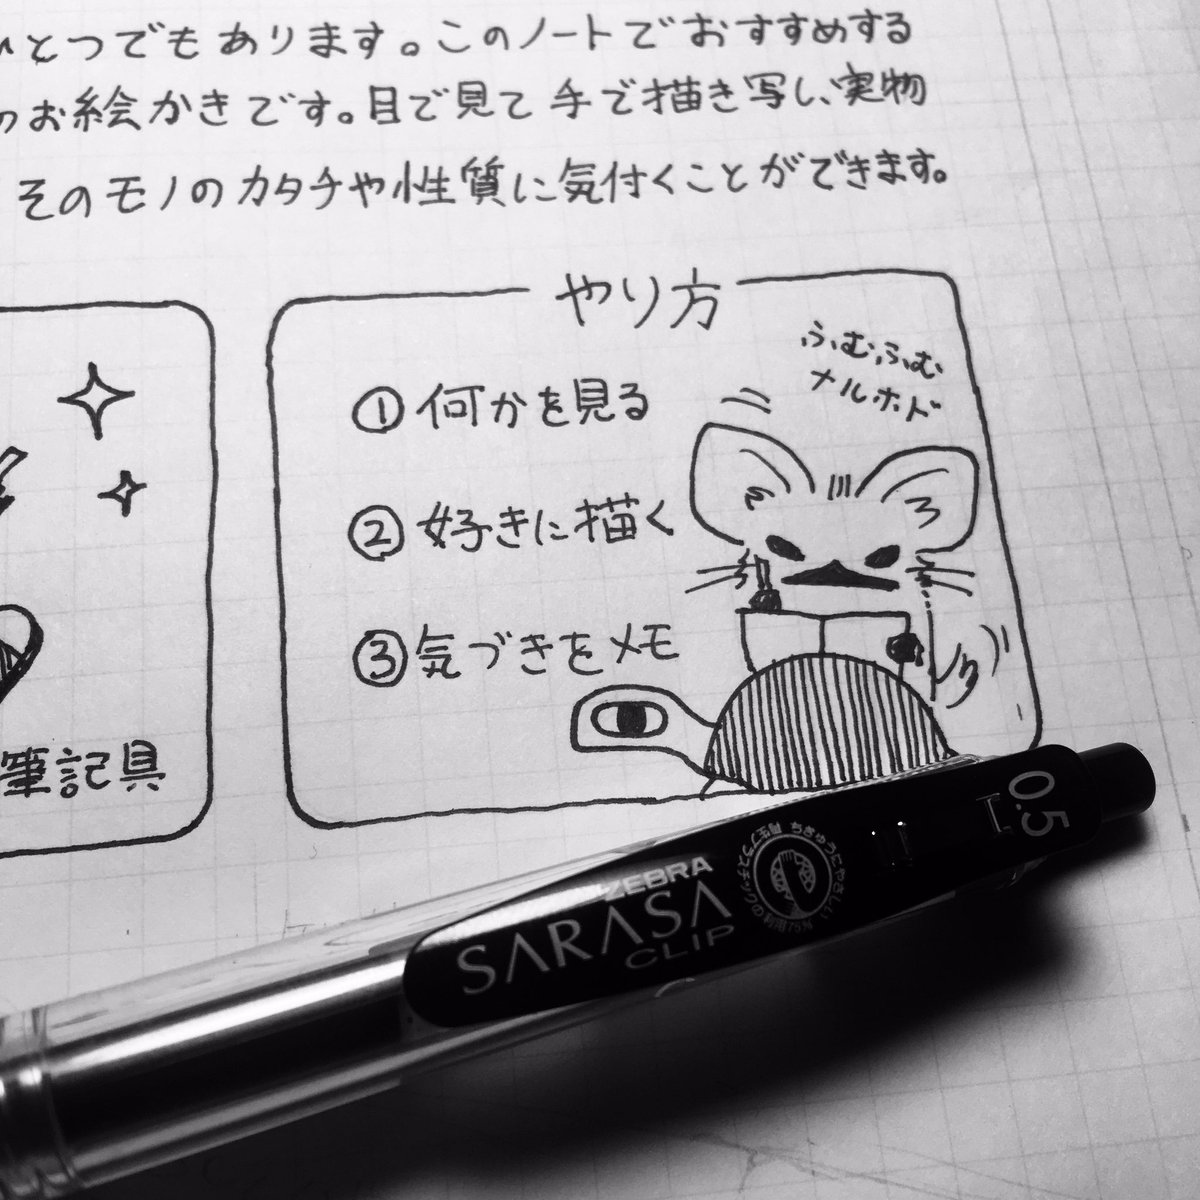 ひとつでもあります。このノートでおすすめする
のお絵かきです。目で見て手で描き写し、実物
そのモノのカタチや性質に気付くことができます。
やり方
ふむふむ
ナルホド
①何かを見る
②好きに描く
③気づきをメモ
筆記具
0.5
ZEBRA
SARASA
CLIP
ちきゅうにやさしい
再生プラスチックの利用75%